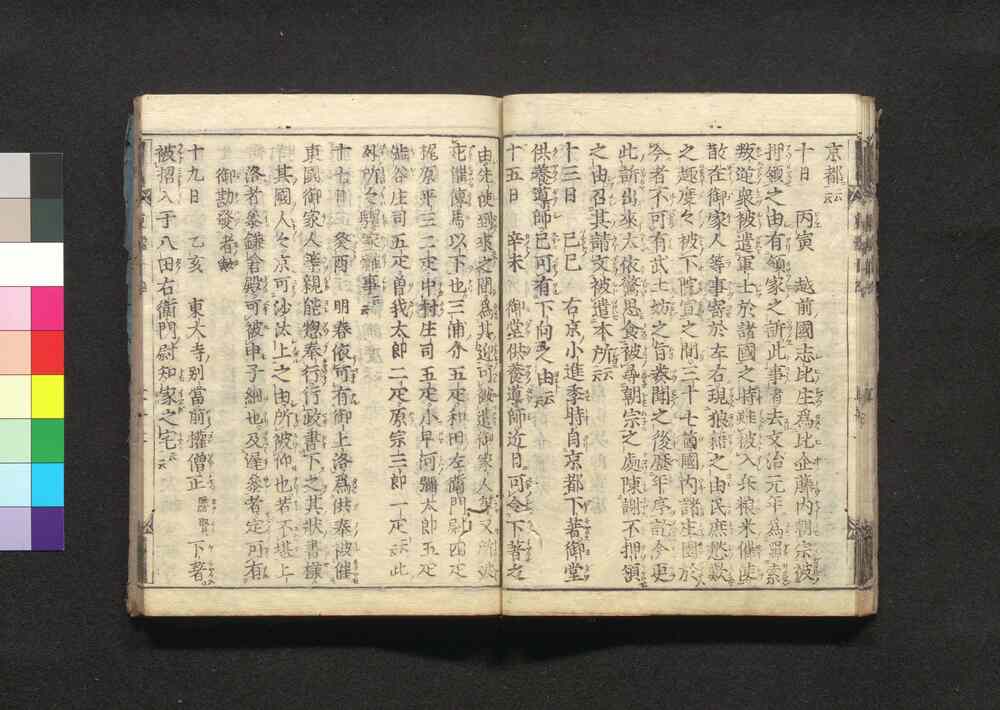 京都云云
十日　丙寅　越前國志比庄爲比企藤内朝宗被
押領之由有領家之訴此事者去文治元年爲尋索
叛逆衆被遣軍士於諸國之時雖被入兵粮米催使
散在御家人等事寄於左右現狼藉之由民庶愁歎
之趣度々被下院宣之間三十七箇國内諸庄園於
今者不可有武士妨之旨奏聞之後歷年序訖今更
此訴出來太依驚思食被尋朝宗之處陳謝不押領
之由召其請文被遣本所云云
十三日　己巳　右京小進季時自京都下著御堂
供養導師已可有下向之由云云
十五日　辛未　御堂供養導師近日可令下著之
由先使到來之間爲其迎可被遣御家人等又所被
宛催傳馬以下也三浦介五疋和田左衛門尉四疋
梶原平三二疋中村庄司五疋小早河彌太郎五疋
澁谷庄司五疋曾我太郎二疋原宗三郎一疋云云此
外所々驛家雜事云云
十七日　癸酉　明春依可有御上洛爲供奉被催
東國御家人等親能惣奉行行政書下之其狀書樣
　其國人々京可沙汰上之由所被仰也若不堪上
　洛者參鎌倉殿可被申子細也及遲參者定可有
　御勘發者歟
十九日　乙亥　東大寺別當前權僧正勝賢下著
被招入于八田右衛門尉知家之宅云云